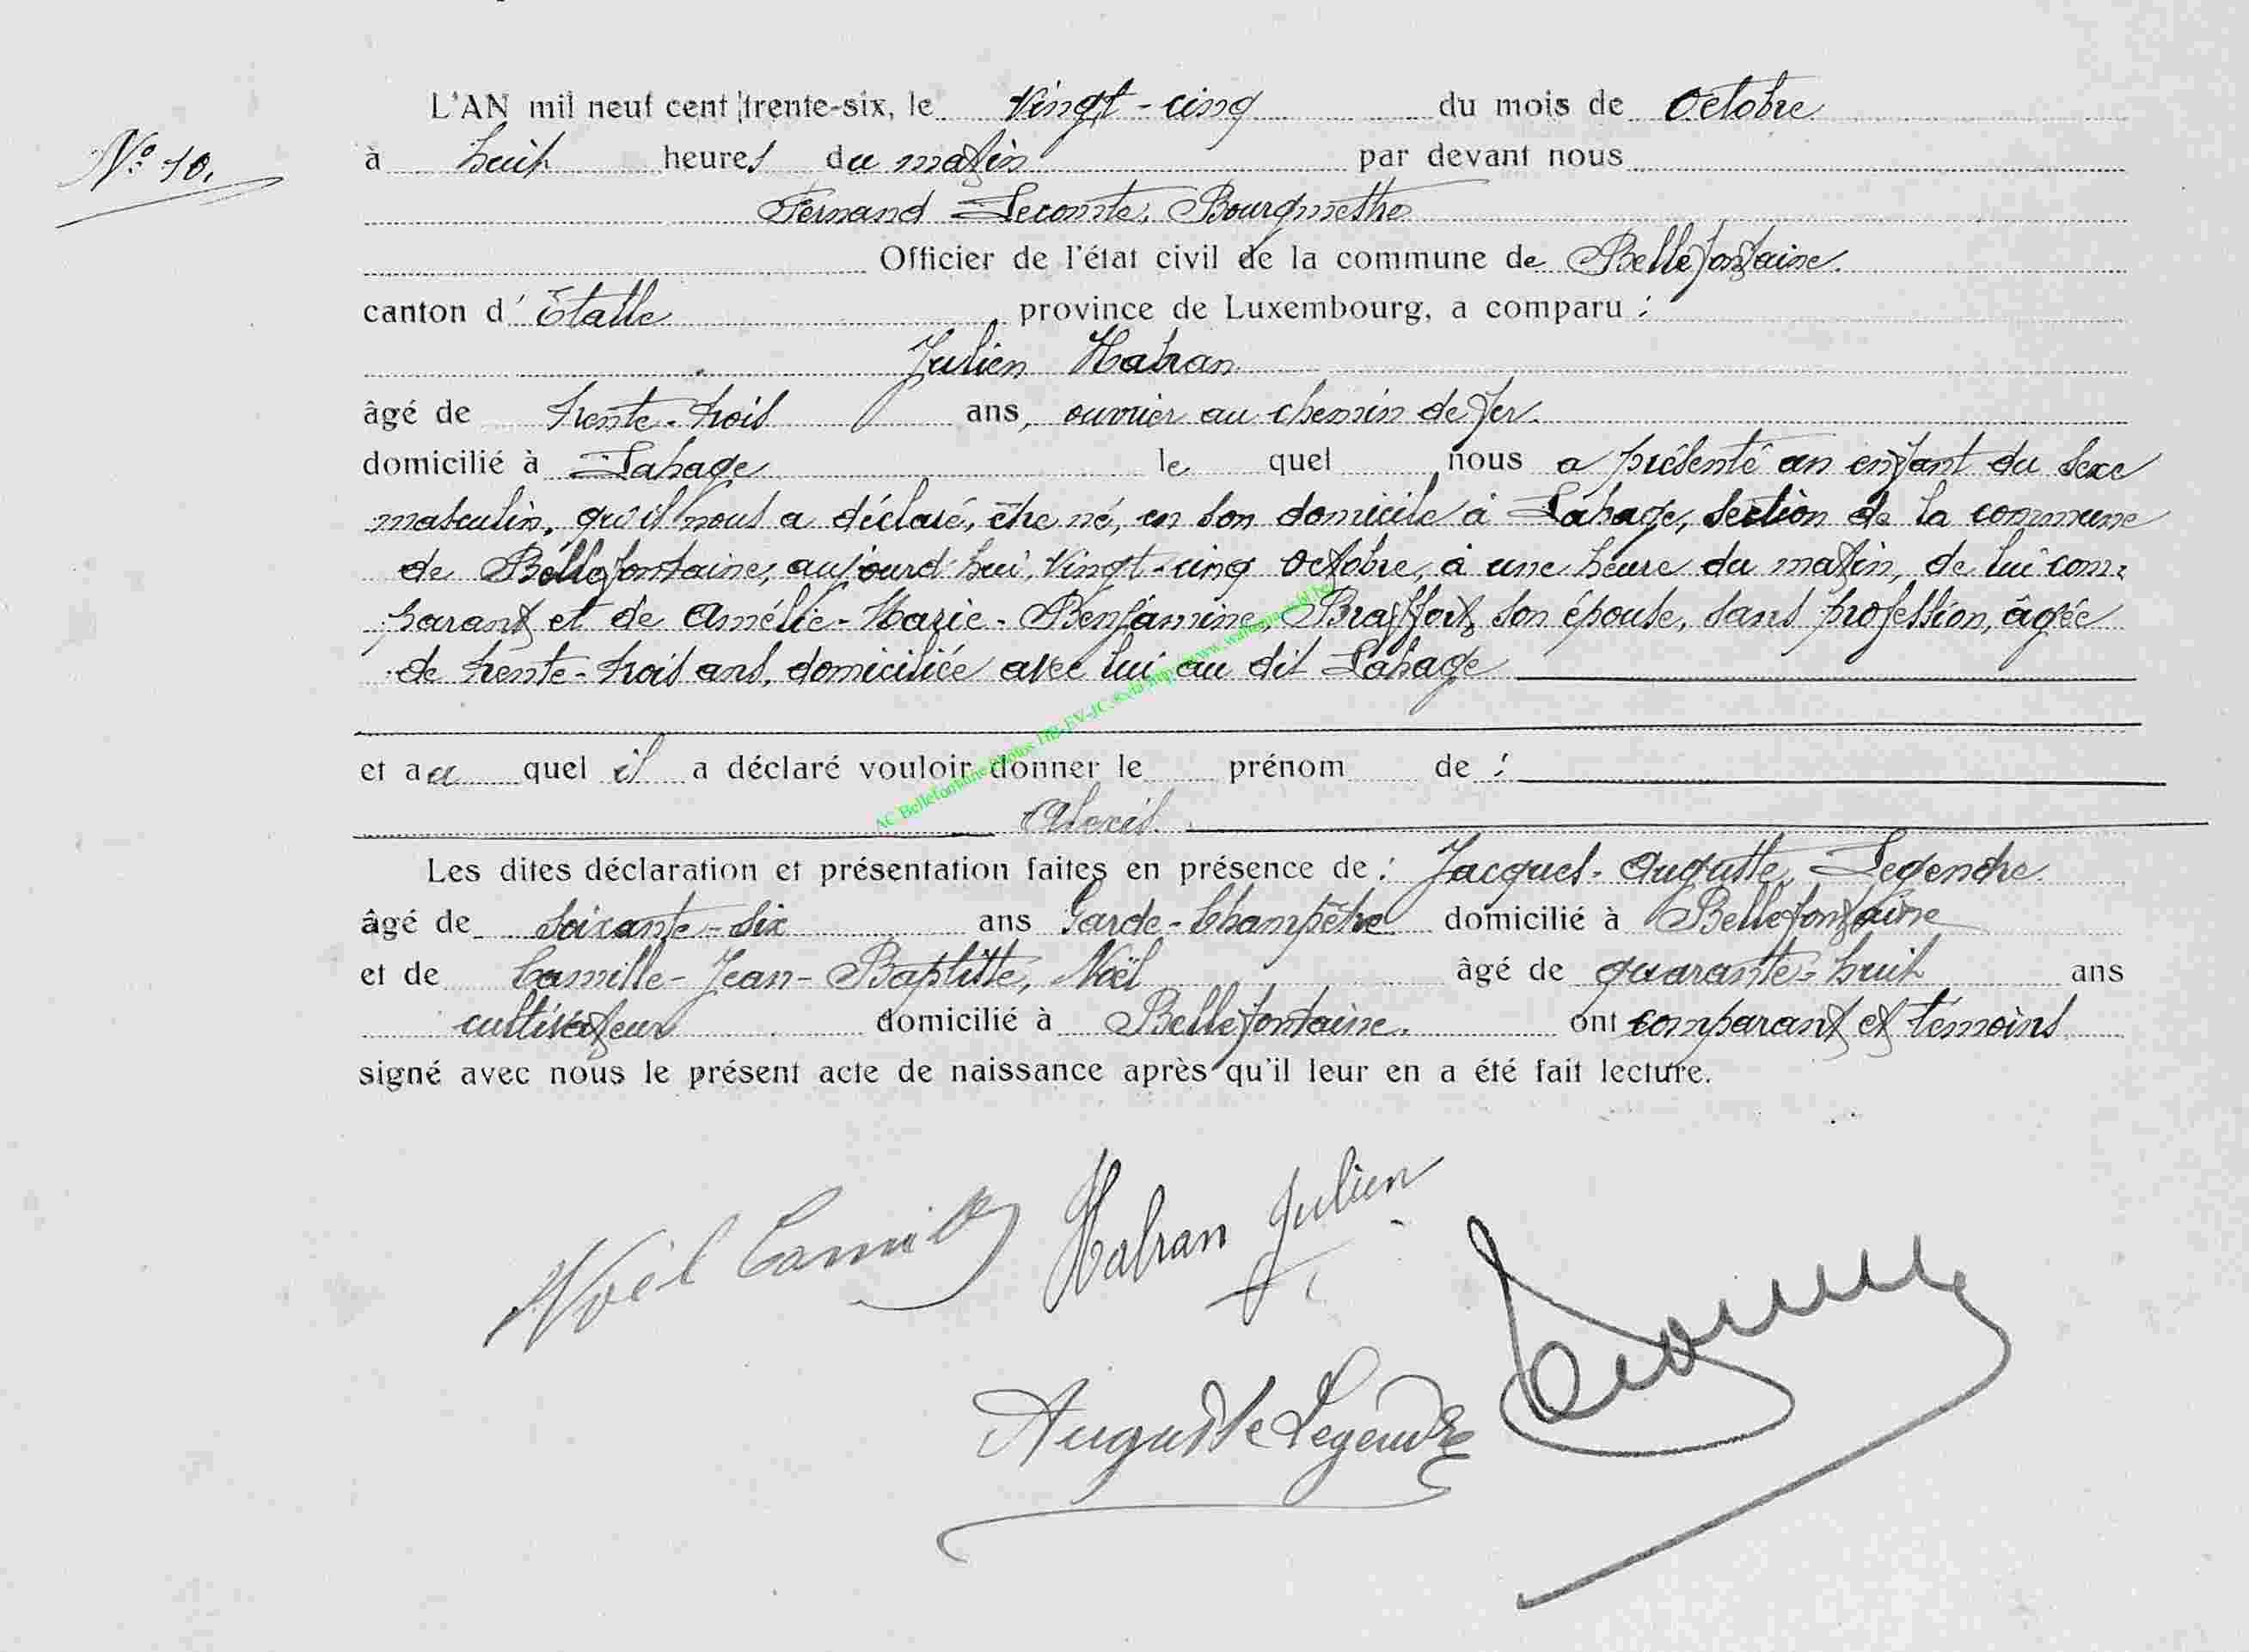 L'AN mil neuf cent trente-six, le vingt-cinq du mois de Octobre
N° 10.
à huit heures du matin par devant nous
Fernand Lecomte, Bourgmestre
Officier de l'état civil de la commune de Bellefontaine.
canton d' Etalle province de Luxembourg, a comparu :
Julien Habran
âgé de trente-trois ans, ouvrier au chemin de fer.
domicilié à Lahage le quel nous a présenté un enfant du sexe
masculin, qu'il nous a déclaré, être né, en son domicile à Lahage, section de la commune
de Bellefontaine, aujourd'hui, vingt-cinq Octobre, à une heure du matin, de lui com-
parant et de Amélie-Marie-Benjamine, Braffort, son épouse, sans profession, âgée
de trente-trois ans, domiciliée avec lui au dit Lahage
et au quel il a déclaré vouloir donner le prénom de :
Alexis.
Les dites déclaration et présentation faites en présence de : Jacques-Auguste, Legendre
âgé de soixante-six ans Garde-Champêtre domicilié à Bellefontaine
et de Camille-Jean-Baptiste, Noël âgé de quarante-huit ans
cultivateur domicilié à Bellefontaine. ont comparant et témoins
signé avec nous le présent acte de naissance après qu'il leur en a été fait lecture.
Noël Camille Habran Julien
Auguste Legendre
AC Bellefontaine Photos